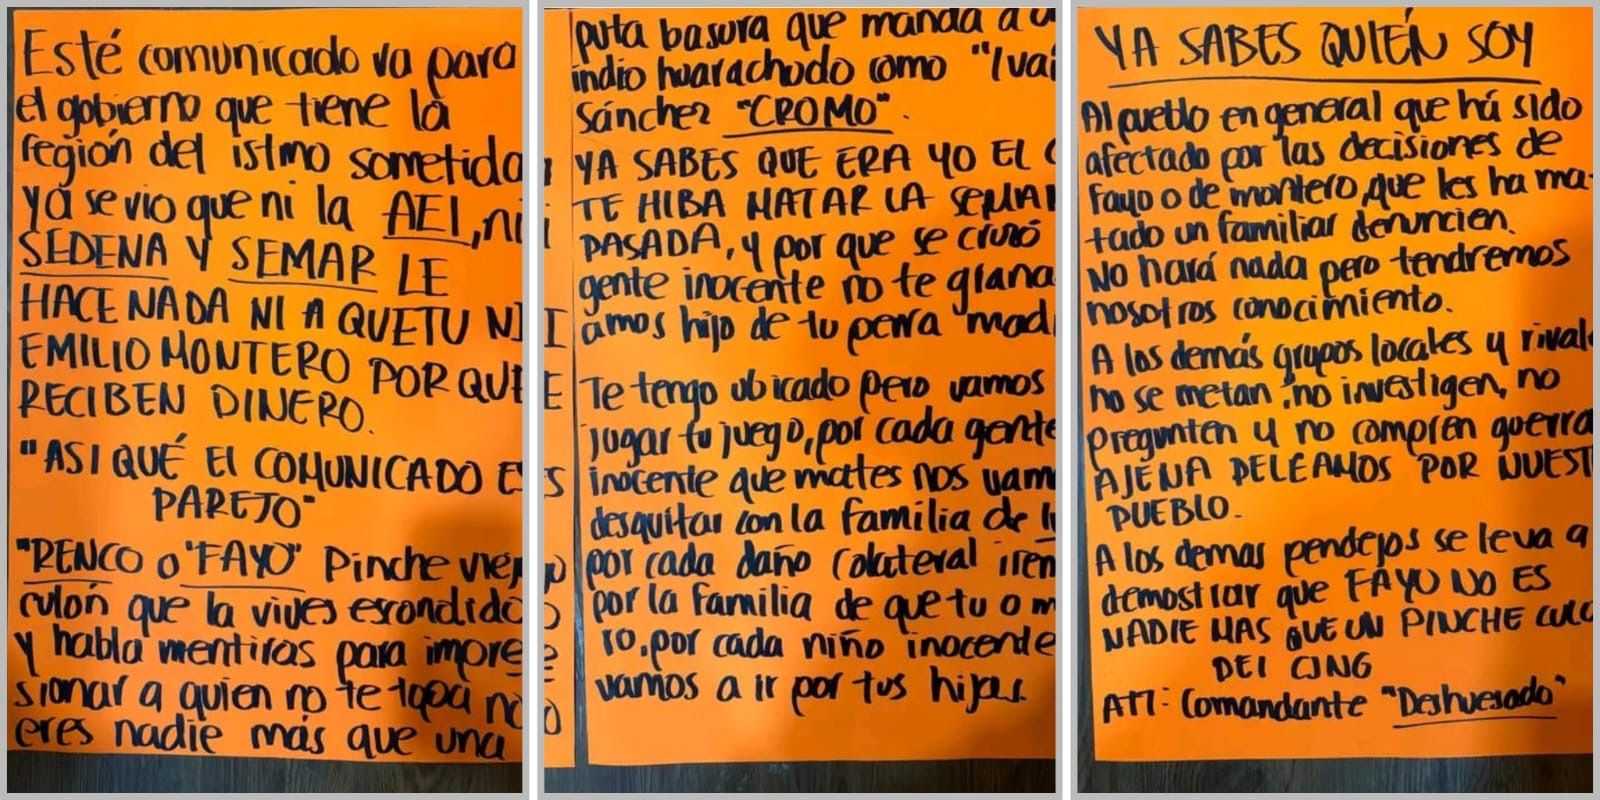 Esté comunicado va para
el gobierno que tiene la
región del istmo sometida
ya se vio que ni la AEI, ni
SEDENA Y SEMAR LE
HACE NADA NI A QUETU NI
EMILIO MONTERO POR QUE
RECIBEN DINERO.
"ASI QUÉ El COMUNICADO ES
PAREJO"
"RENCO o "FAYO" Pinche viej
culón que la vives escondido
y habla mentiras para impre
sionar a quien no te topa no
eres nadie más que una
puta basura que manda a u
indio huarachudo como "Ivai
Sánchez "CROMO".
YA SABES QUE ERA YO EL
TE HIBA MATAR LA SEMAN
PASADA, y por que se cruzó
gente inocente no te grana
amos hijo de tu perra mad
Te tengo ubicado pero vamos
jugar tu juego, por cada gente
inocente que mates nos vam
desquitar con la familia de
por cada daño colateral iren
por la familia de quetu o m
ro, por cada niño inocente
vamos a ir por tus hijas.
YA SABES QUIÉN SOY
Al pueblo en general que há sido
afectado por las decisiones de
fayo o de montero, que les ha ma-
tado un familiar denuncien.
No hará nada pero tendremos
nosotros conocimiento.
A los demás grupos locales y rival
no se metan, no investigen, no
pregunten y no compren guerra
AJENA PELEAMOS POR NUEST
PUEBLO.
A los demas pendejos se leva a
demostrar que FAYO NO ES
NADIE MAS QUE UN PINCHE CULO
DEl CJNG
ATT: Comandante "Deshuesado"